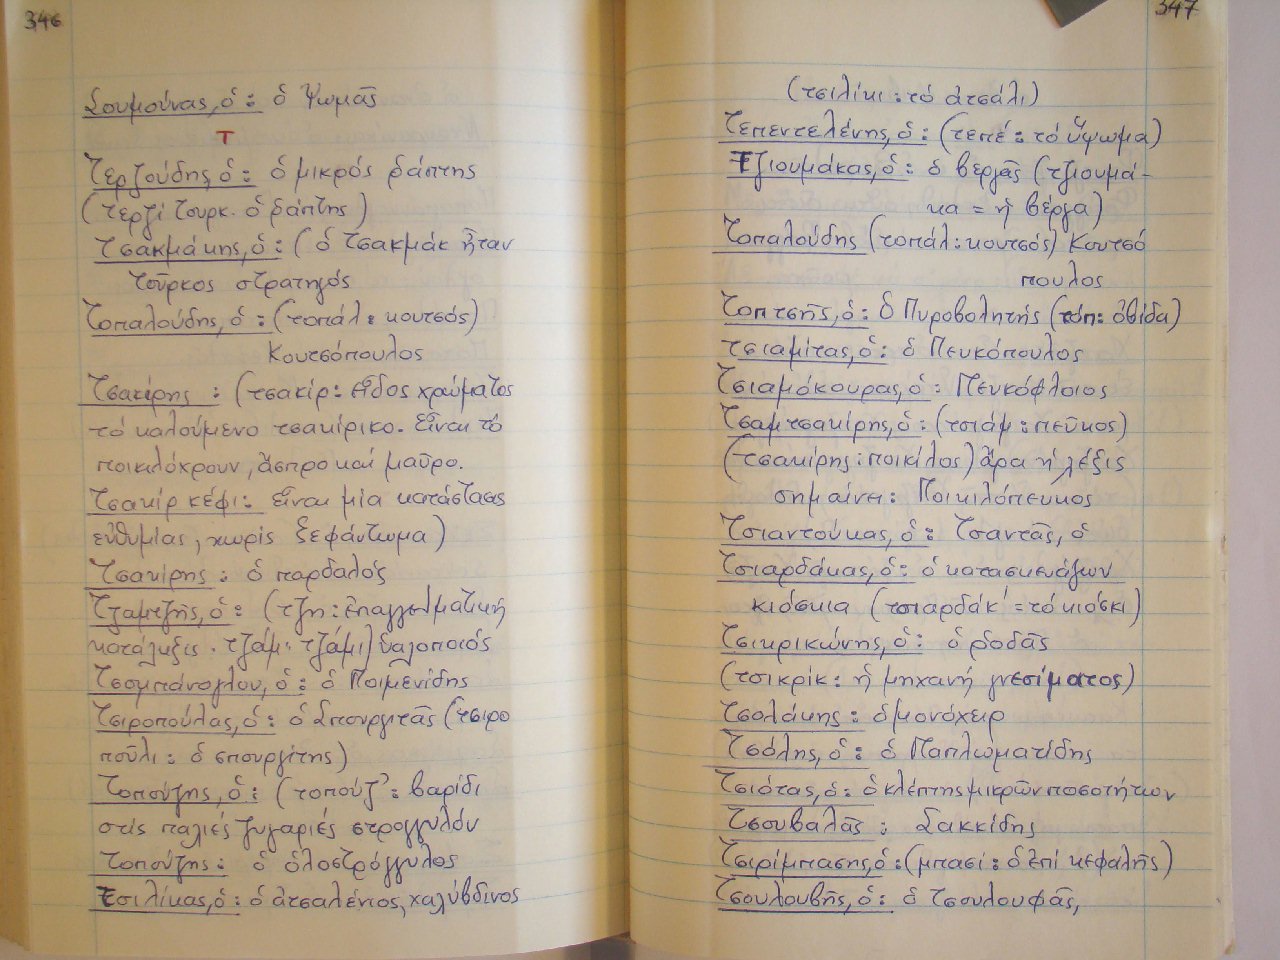 346
Σουμούνας, ὁ: ὁ Ψωμᾶς
Τ
Τερζούδης, ὁ: ὁ μικρός ράπτης
(τερζί Τουρκ. ὁ ράπτης)
Τσακμάκης, ὁ: (ὁ Τσακμάκ ἦταν
Τοῦρκος στρατηγός
Τοπαλούδης, ὁ: (τοπάλ: κουτσός)
Κουτσόπουλος
Τσακίρης : (τσακίρ: εἶδος χρώματος
τό καλούμενο τσακίρικο. Εἶναι τό
ποικιλόχρουν, ἄσπρο καί μαῦρο.
Τσακίρ κέφι: εἶναι μία κατάστασις
εὐθυμίας, χωρίς ξεφάντωμα)
Τσακίρης : ὁ παρδαλός
Τζαμτζῆς, ὁ: (τζη: ἐπαγγελματική
κατάληξις. τζάμ: τζάμι) ὑαλοποιός
Τσομπάνογλου, ὁ: ὁ Ποιμενίδης
Τσιροπούλας, ὁ: ὁ Σπουργιτᾶς (τσιρο
ποῦλι: ὁ σπουργίτης)
Τοπούζης, ὁ: (τοπούζ': βαρίδι
στίς παλιές ζυγαριές στρογγυλόν
Τοπούζης: ὁ ὁλοστρόγγυλος
Τσιλίκας, ὁ: ὁ ἀτσαλένιος, χαλύβδινος
347
(τσιλίκι: τό ἀτσάλι)
Τεπεντελένης, ὁ: (τεπέ: τό ὕψωμα)
Τζιουμάκας, ὁ: ὁ βεργᾶς (τζιουμά-
κα = ἡ βέργα)
Τοπαλούδης (τοπάλ: κουτσός) Κουτσό
πουλος
Τοπτσῆς, ὁ: ὁ Πυροβολητής (τόπ: ὀβίδα)
τσιαμίτας, ὁ: ὁ Πευκόπουλος
Τσιαμόκουρας, ὁ: Πευκόφλοιος
Τσαμτσακίρης, ὁ: (τσιάμ: πεῦκος)
(τσακίρης: ποικίλος) ἄρα ἡ λέξις
σημαίνει: Ποικιλόπευκος
Τσιαντούκας, ὁ: Τσαντᾶς, ὁ
Τσιαρδάκας, ὁ: ὁ κατασκευάζων
κιόσκια (τσιαρδάκ' = τό κιόσκι)
Τσικρικώνης, ὁ: ὁ ροδᾶς
(τσικρίκ: ἡ μηχανή γνεσίματος)
Τσολάκης: ὁ μονόχειρ
Τσόλης, ὁ: ὁ Παπλωματίδης
Τσιότας, ὁ: ὁ κλέπτης μικρῶν ποσοτήτων
Τσουβαλᾶς: Σακκίδης
Τσιρίμπασης, ὁ: (μπασί: ὁ ἐπί κεφαλῆς)
Τσουλουβῆς, ὁ: ὁ Τσουλουφᾶς,